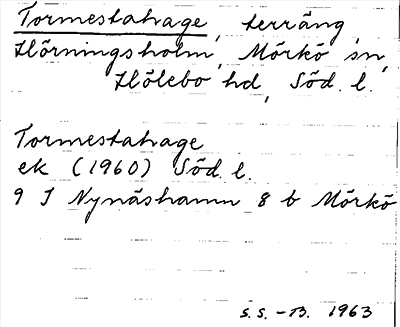 Tormestahage, terräng,
Hörningsholm, Mörkö sn,
Hölebo hd, Söd. l.
Tormestahage
ek (1960) Söd. l.
9 I Nynäshamn 8 b Mörkö
S.S. - B. 1963